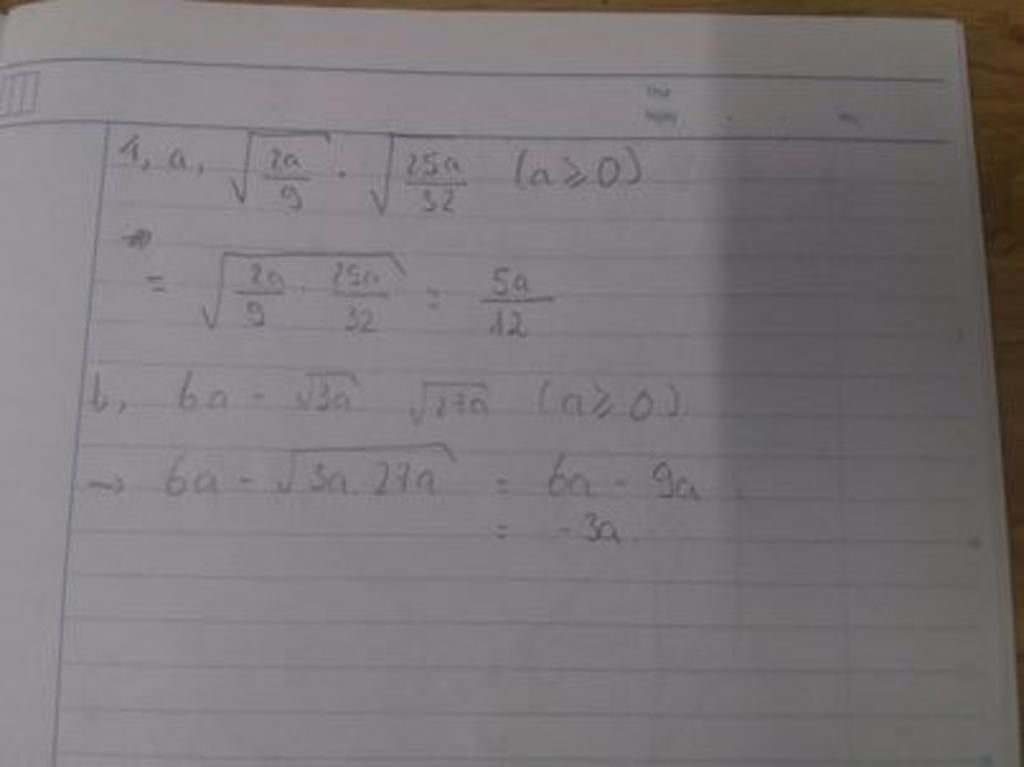 1, a, √(2a/9) · √(25a/32) (a ≥ 0)
= √(2a/9 · 25a/32) = 5a/12
b, 6a - √3a √27a (a ≥ 0)
→ 6a - √(3a 27a) = 6a - 9a
= -3a